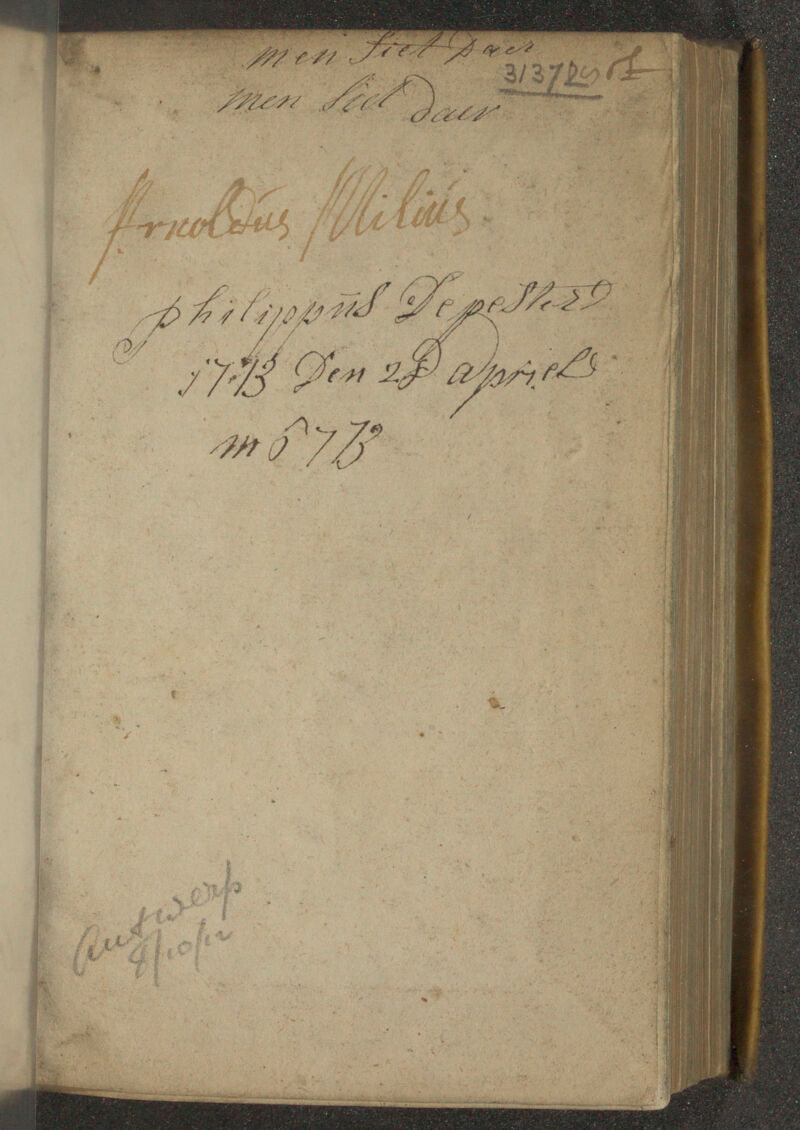 men Siet Daer
3137
men Siet Daer
Arnoldus Milius
philippus De pester
1713 Den 2 apriel
m 6713
Antwerp
8/10/12